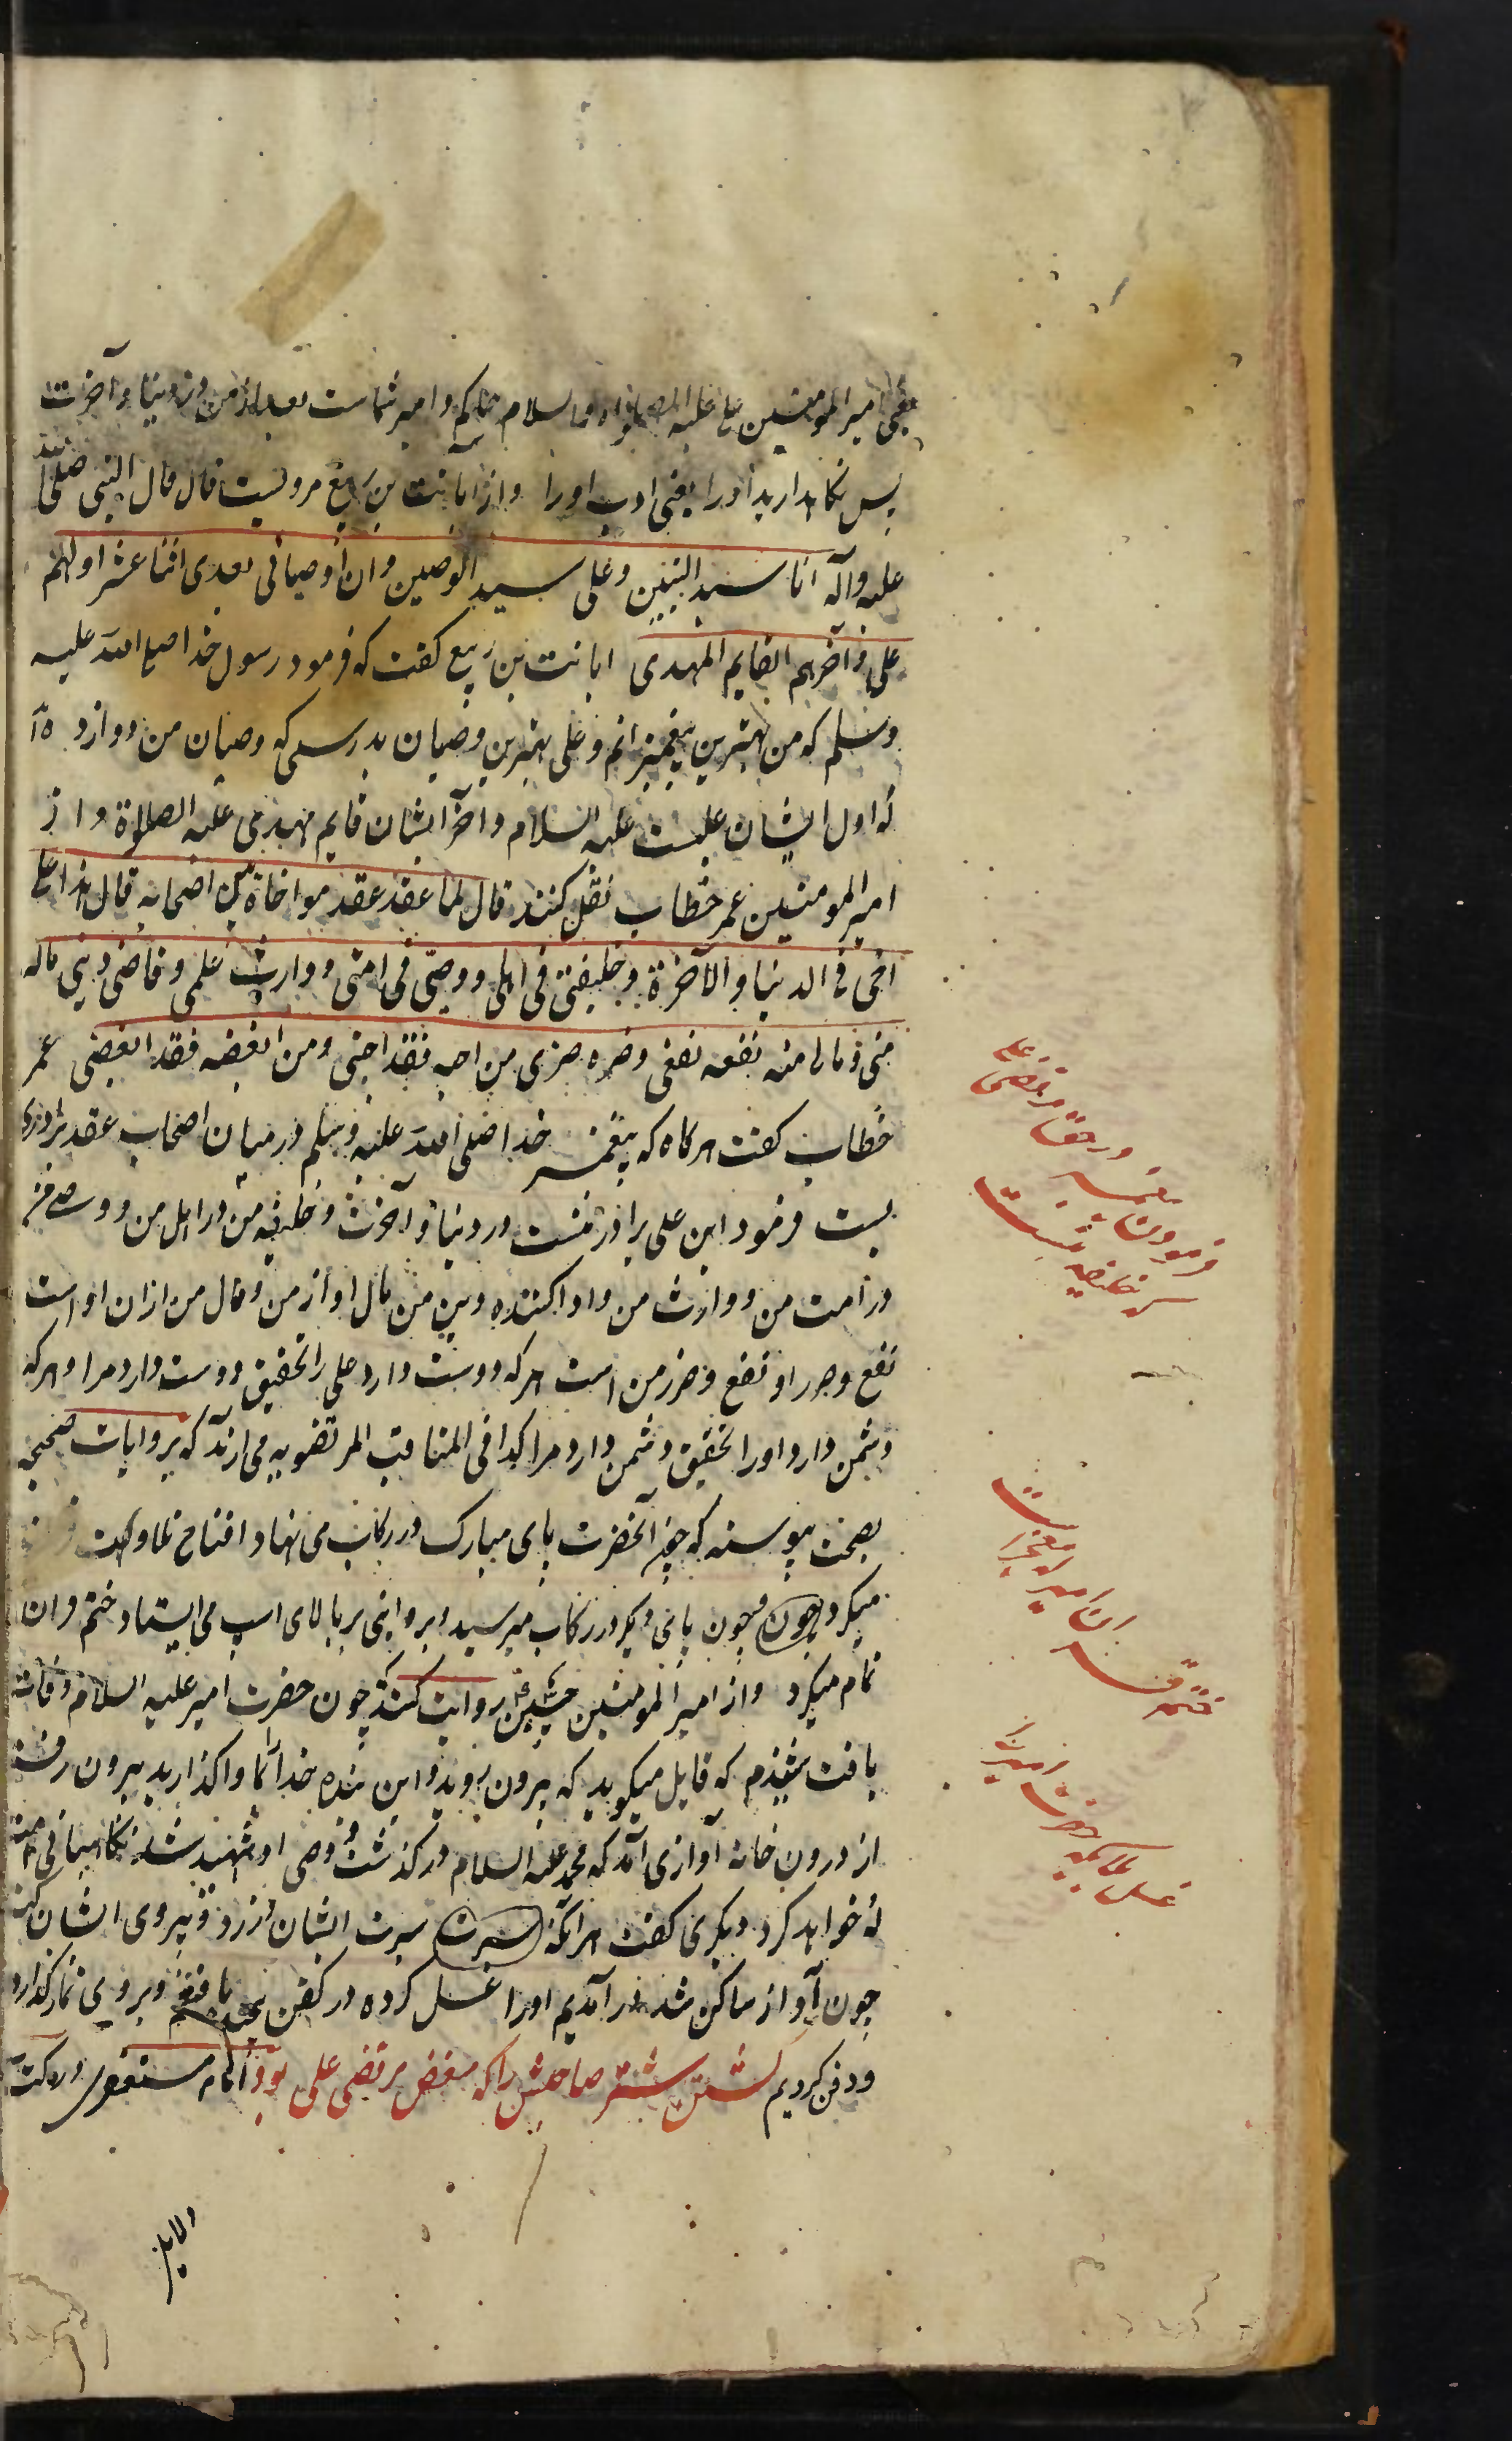 یعنی امیر المومنین علی علیه الصلواه والسلام حاکم و امیر شماست بعد از من در دنیا و آخرت
پس نکاهدارید اورا یعنی ادب اورا و از ابانت بن ربیع مرویست قال قال النبی صلی الله
علیه وآله انا سید النبیین وعلی سید الوصیین وان اوصیائی بعدی اثنا عشر اولهم
علی وآخرهم القایم المهدی ابانت بن ربیع کفت که فرمود رسول خدا صلی الله علیه
وسلم که من بهترین پیغمبرانم وعلی بهترین وصیان بدرستی که وصیان من دوازده ا
که اول ایشان علیست علیه السلام وآخر ایشان قایم مهدی علیه الصلوة و از
امیر المومنین عمر خطاب نقل کنند قال لما عقد عقد مواخاة بین اصحابه قال هذا علی
اخی فی الدنیا والآخرة وخلیفتی فی اهلی ووصیی فی امتی ووارث علمی وقاضی دینی ماله
منی ومالی منه نفعه نفعی وضره ضری من احبه فقد احبنی ومن ابغضه فقد ابغضنی عمر
خطاب کفت هرکاه که پیغمبر خدا صلی الله علیه وسلم درمیان اصحاب عقد برادری
بست فرمود این علی برادر منست در دنیا وآخرت وخلیفه من در اهل من ووصی من
در امت من ووارث من وادا کننده دین من مال او از من ومال من ازان اوست
نفع وضرر او نفع وضرر من است هرکه دوست دارد علی را تحقیق دوست دارد مرا وهرکه
دشمن دارد اورا تحقیق دشمن دارد مرا کذا فی المناقب المرتضویه می ارند که بروایات صحیحه
بصحت پیوسته که چون آنحضرت پای مبارک در رکاب می نهاد افتتاح تلاوت
میکرد چون وچون پای دیکر در رکاب میرسید وبروایتی بر بالای اسپ می ایستاد ختم قران
تمام میکرد واز امیر المومنین حسین روایت کنند چون حضرت امیر علیه السلام وفات
یافت شنیدم که قایل میکوید که بیرون روید واین بنده خدا را بما واکذارید بیرون رفتیم
از درون خانه آوازی آمد که محمد علیه السلام درکذشت ووصی او شهید شد نکاهبانی امت
که خواهد کرد دیکری کفت هرانکه سیرت سیرت ایشان ورزد وپیروی ایشان کند
چون آواز ساکن شد درآمدیم اورا غسل کرده در کفن یافتیم وبروی نماز کذاردیم
ودفن کردیم کشتن شتر صاحبش را که مبغض مرتضی علی بود امام مستغفری در کتاب
دلایل
فرمودن پیغمبر در حق مرتضی علی
که خلیفه منست
ختم قران امیر از معجزات
غسل ملایکه حضرت امیر را